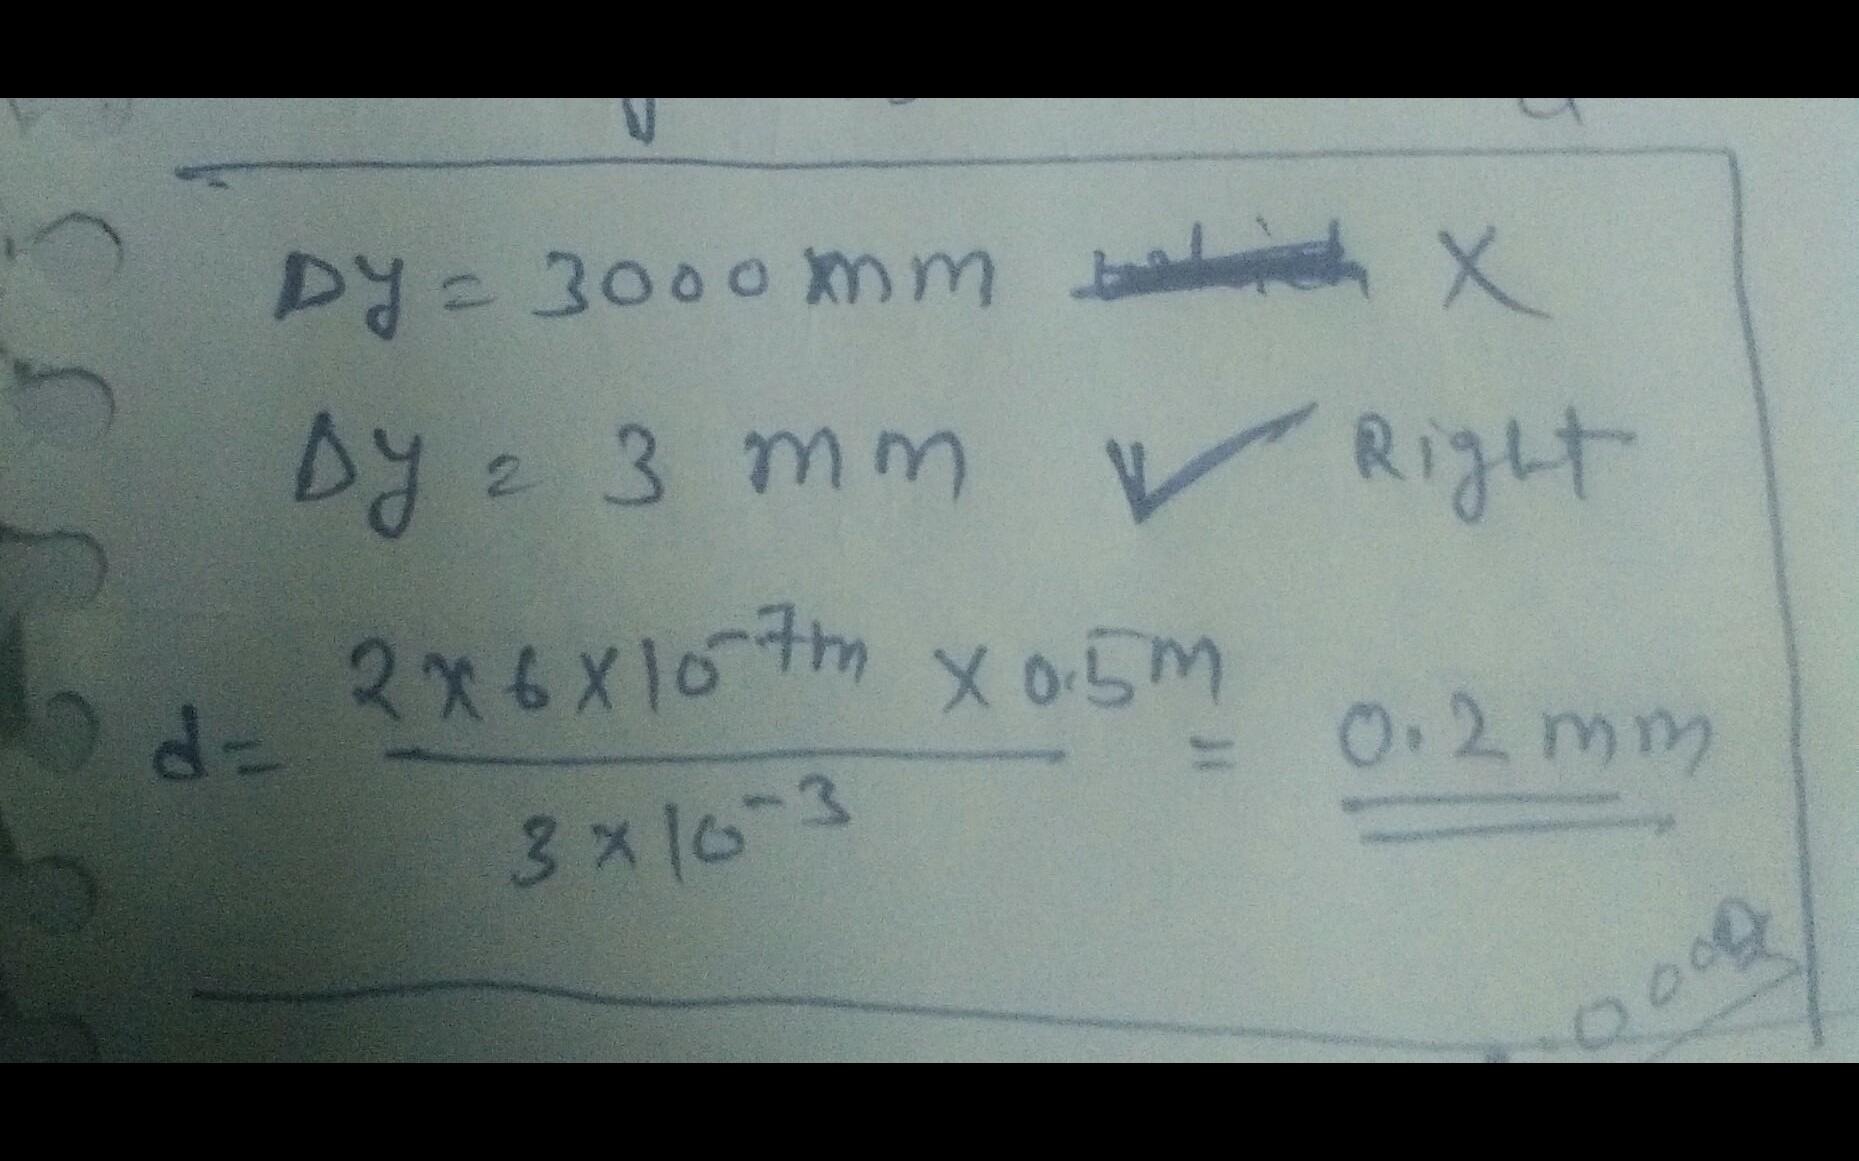 Δy = 3000 mm X
Δy = 3 mm ✓ Right
d = 2 x 6 x 10⁻⁷m x 0.5m / 3 x 10⁻³ = 0.2 mm